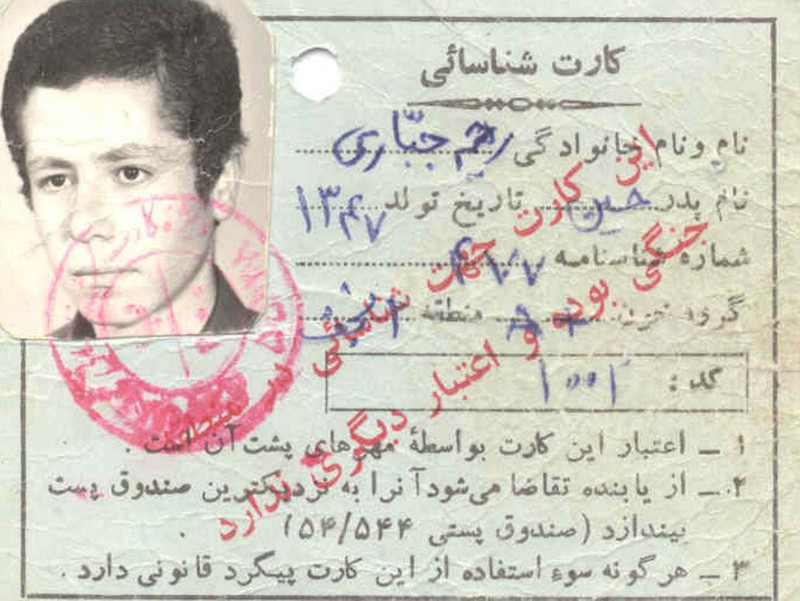 کارت شناسائی
نام ونام خانوادگی رحیم جبّاری
نام پدر حسن تاریخ تولد ۱۳۴۷
شماره شناسنامه ۴۷۷
گروه خون منطقه
کد : ۱۰۰۲
۱ ــ اعتبار این کارت بواسطهٔ مهرهای پشت آن است .
۲ ــ از یابنده تقاضا می‌شود آنرا به نزدیکترین صندوق پست
بیندازد (صندوق پستی ۵۴/۵۴۴)
۳ ــ هرگونه سوءِ استفاده از این کارت پیگرد قانونی دارد .
این کارت جهت شناسائی در منطقه
جنگی بوده و اعتبار دیگری ندارد